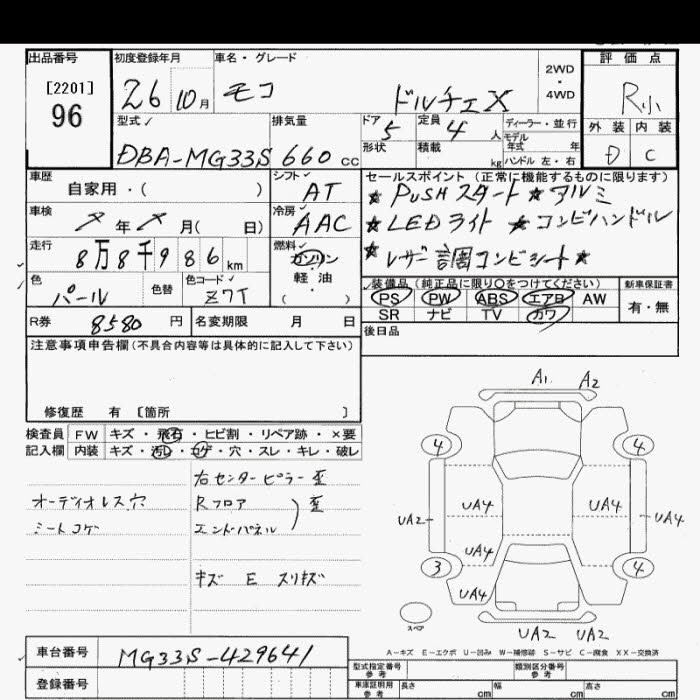 出品番号 初度登録年月 車名・グレード 評価点
[2201] 96
26 10月 モコ ドルチェX 2WD・4WD R小
型式 排気量 ドア 5 定員 4人 ディーラー・並行 外装 内装
モデル年式 年
DBA-MG33S 660cc 形状 積載 kg ハンドル 左・右 D C
車歴 自家用・( ) シフト AT セールスポイント (正常に機能するものに限ります)
★PUSHスタート★アルミ
車検 年 月( 日) 冷房 AAC ★LEDライト ★コンビハンドル
走行 8万8千986km 燃料 ガソリン 軽・油 ・( ) ★レザー調コンビシート★
色 パール 色替 色コード Z7T 装備品 (純正品に限り○をつけてください) 新車保証書
PS PW ABS エアB AW 有・無
SR ナビ TV カワ
R券 8580円 名変期限 月 日 後日品
注意事項申告欄(不具合内容等は具体的に記入して下さい)
修復歴 有 〔箇所 〕
検査員 FW キズ・飛石・ヒビ割・リペア跡・×要
記入欄 内装 キズ・汚レ・コゲ・穴・スレ・キレ・破レ
右センターピラー歪
オーディオレス穴 Rフロア
ミートコゲ エンドパネル ) 歪
キズ E スリキズ
A1 A2
4 4
UA4 UA4
UA2 UA4
UA4
3 4
UA4
スペア
UA2 UA2
A-キズ E-エクボ U-凹み W-補修跡 S-サビ C-腐食 XX-交換済
車台番号 MG33S-429641
登録番号
型式指定番号 参考 類別区分番号 参考
車庫証明用 参考 長さ cm 幅 cm 高さ cm